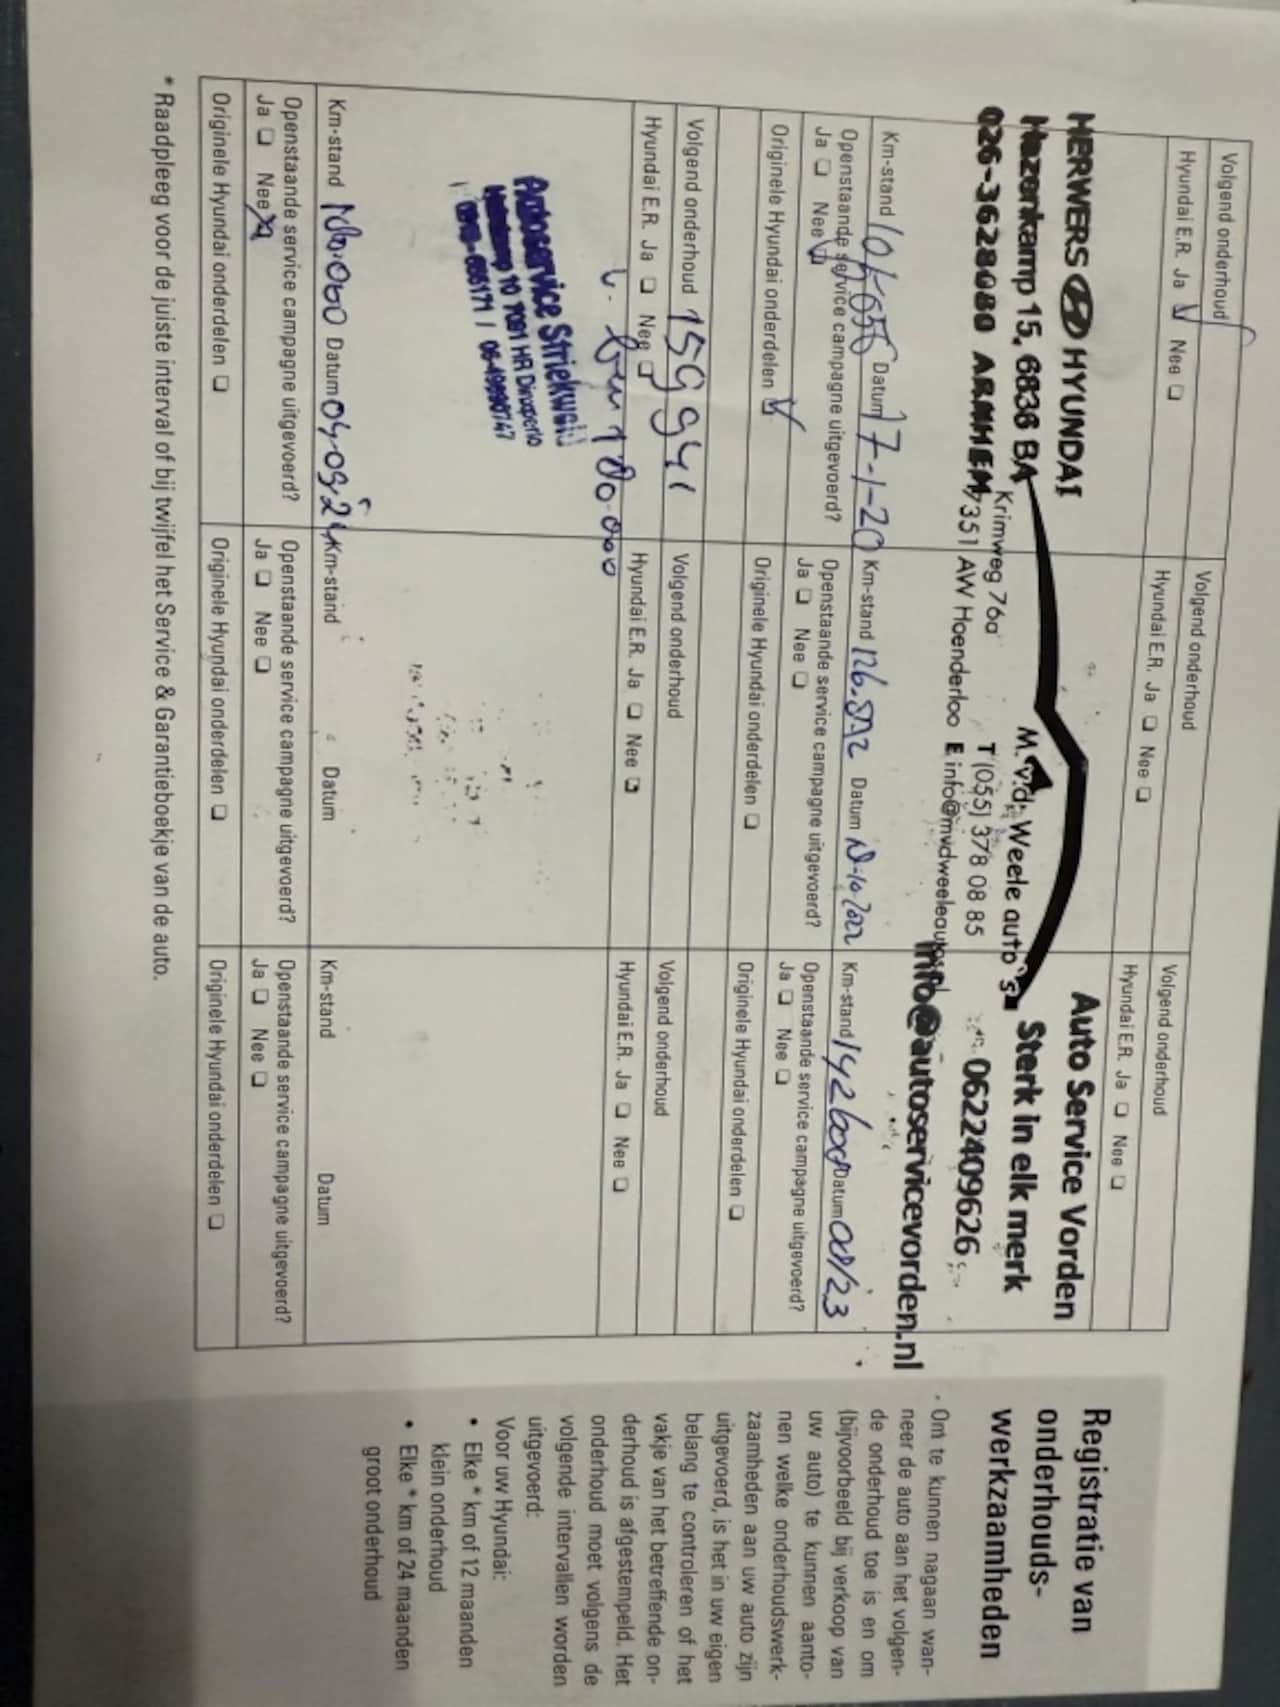 Volgend onderhoud
Hyundai E.R. Ja ☑ Nee ❏
HERWERS HYUNDAI
Hazenkamp 15, 6836 BA
026-3628080 ARNHEM
Km-stand Datum 17-1-20
Openstaande service campagne uitgevoerd?
Ja ❏ Nee ☑
Originele Hyundai onderdelen ☑
Volgend onderhoud
Hyundai E.R. Ja ❏ Nee ❏
M. v.d. Weele auto's
Krimweg 76a T (055) 378 08 85
7351 AW Hoenderloo E info@mvdweeleautos.nl
Km-stand 126.592 Datum
Openstaande service campagne uitgevoerd?
Ja ❏ Nee ❏
Originele Hyundai onderdelen ❏
Volgend onderhoud
Hyundai E.R. Ja ❏ Nee ❏
Auto Service Vorden
Sterk in elk merk
0622409626
info@autoservicevorden.nl
Km-stand 142600 Datum 08/23
Openstaande service campagne uitgevoerd?
Ja ❏ Nee ❏
Originele Hyundai onderdelen ❏
Volgend onderhoud 159941
Hyundai E.R. Ja ❏ Nee ❏
180.000
Autoservice Striekwold
10 7091 HR Dinxperlo
Km-stand Datum 04-09-24
Openstaande service campagne uitgevoerd?
Ja ❏ Nee ☒
Originele Hyundai onderdelen ❏
Volgend onderhoud
Hyundai E.R. Ja ❏ Nee ❏
Km-stand Datum
Openstaande service campagne uitgevoerd?
Ja ❏ Nee ❏
Originele Hyundai onderdelen ❏
Volgend onderhoud
Hyundai E.R. Ja ❏ Nee ❏
Km-stand Datum
Openstaande service campagne uitgevoerd?
Ja ❏ Nee ❏
Originele Hyundai onderdelen ❏
* Raadpleeg voor de juiste interval of bij twijfel het Service & Garantieboekje van de auto.
Registratie van
onderhouds-
werkzaamheden
Om te kunnen nagaan wan-
neer de auto aan het volgen-
de onderhoud toe is en om
(bijvoorbeeld bij verkoop van
uw auto) te kunnen aanto-
nen welke onderhoudswerk-
zaamheden aan uw auto zijn
uitgevoerd, is het in uw eigen
belang te controleren of het
vakje van het betreffende on-
derhoud is afgestempeld. Het
onderhoud moet volgens de
volgende intervallen worden
uitgevoerd:
Voor uw Hyundai:
• Elke * km of 12 maanden
klein onderhoud
• Elke * km of 24 maanden
groot onderhoud